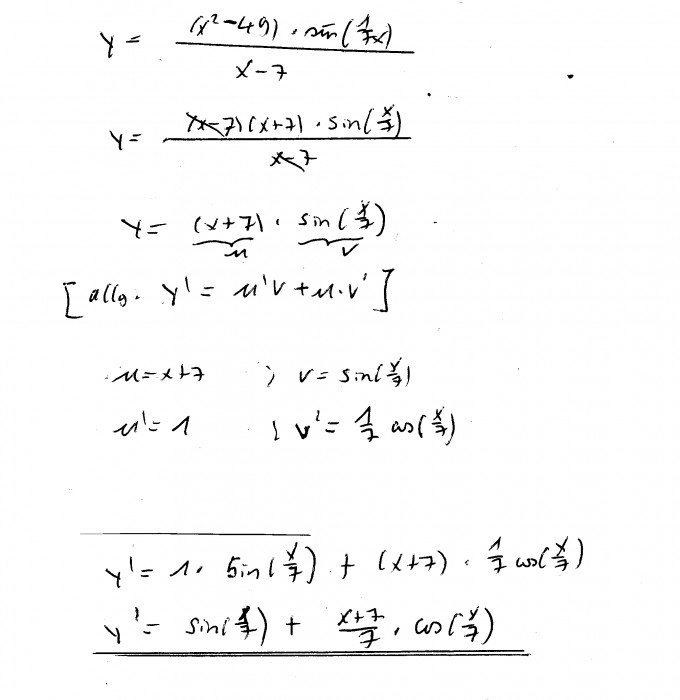 y = (x²-49) · sin(1/7 x) / x-7
y = (x-7)(x+7) · sin(x/7) / x-7
y = (x+7) · sin(x/7)
u v
[allg. y' = u'v + u·v']
u = x+7 ; v = sin(x/7)
u' = 1 ; v' = 1/7 cos(x/7)
y' = 1 · sin(x/7) + (x+7) · 1/7 cos(x/7)
y' = sin(x/7) + x+7/7 · cos(x/7)